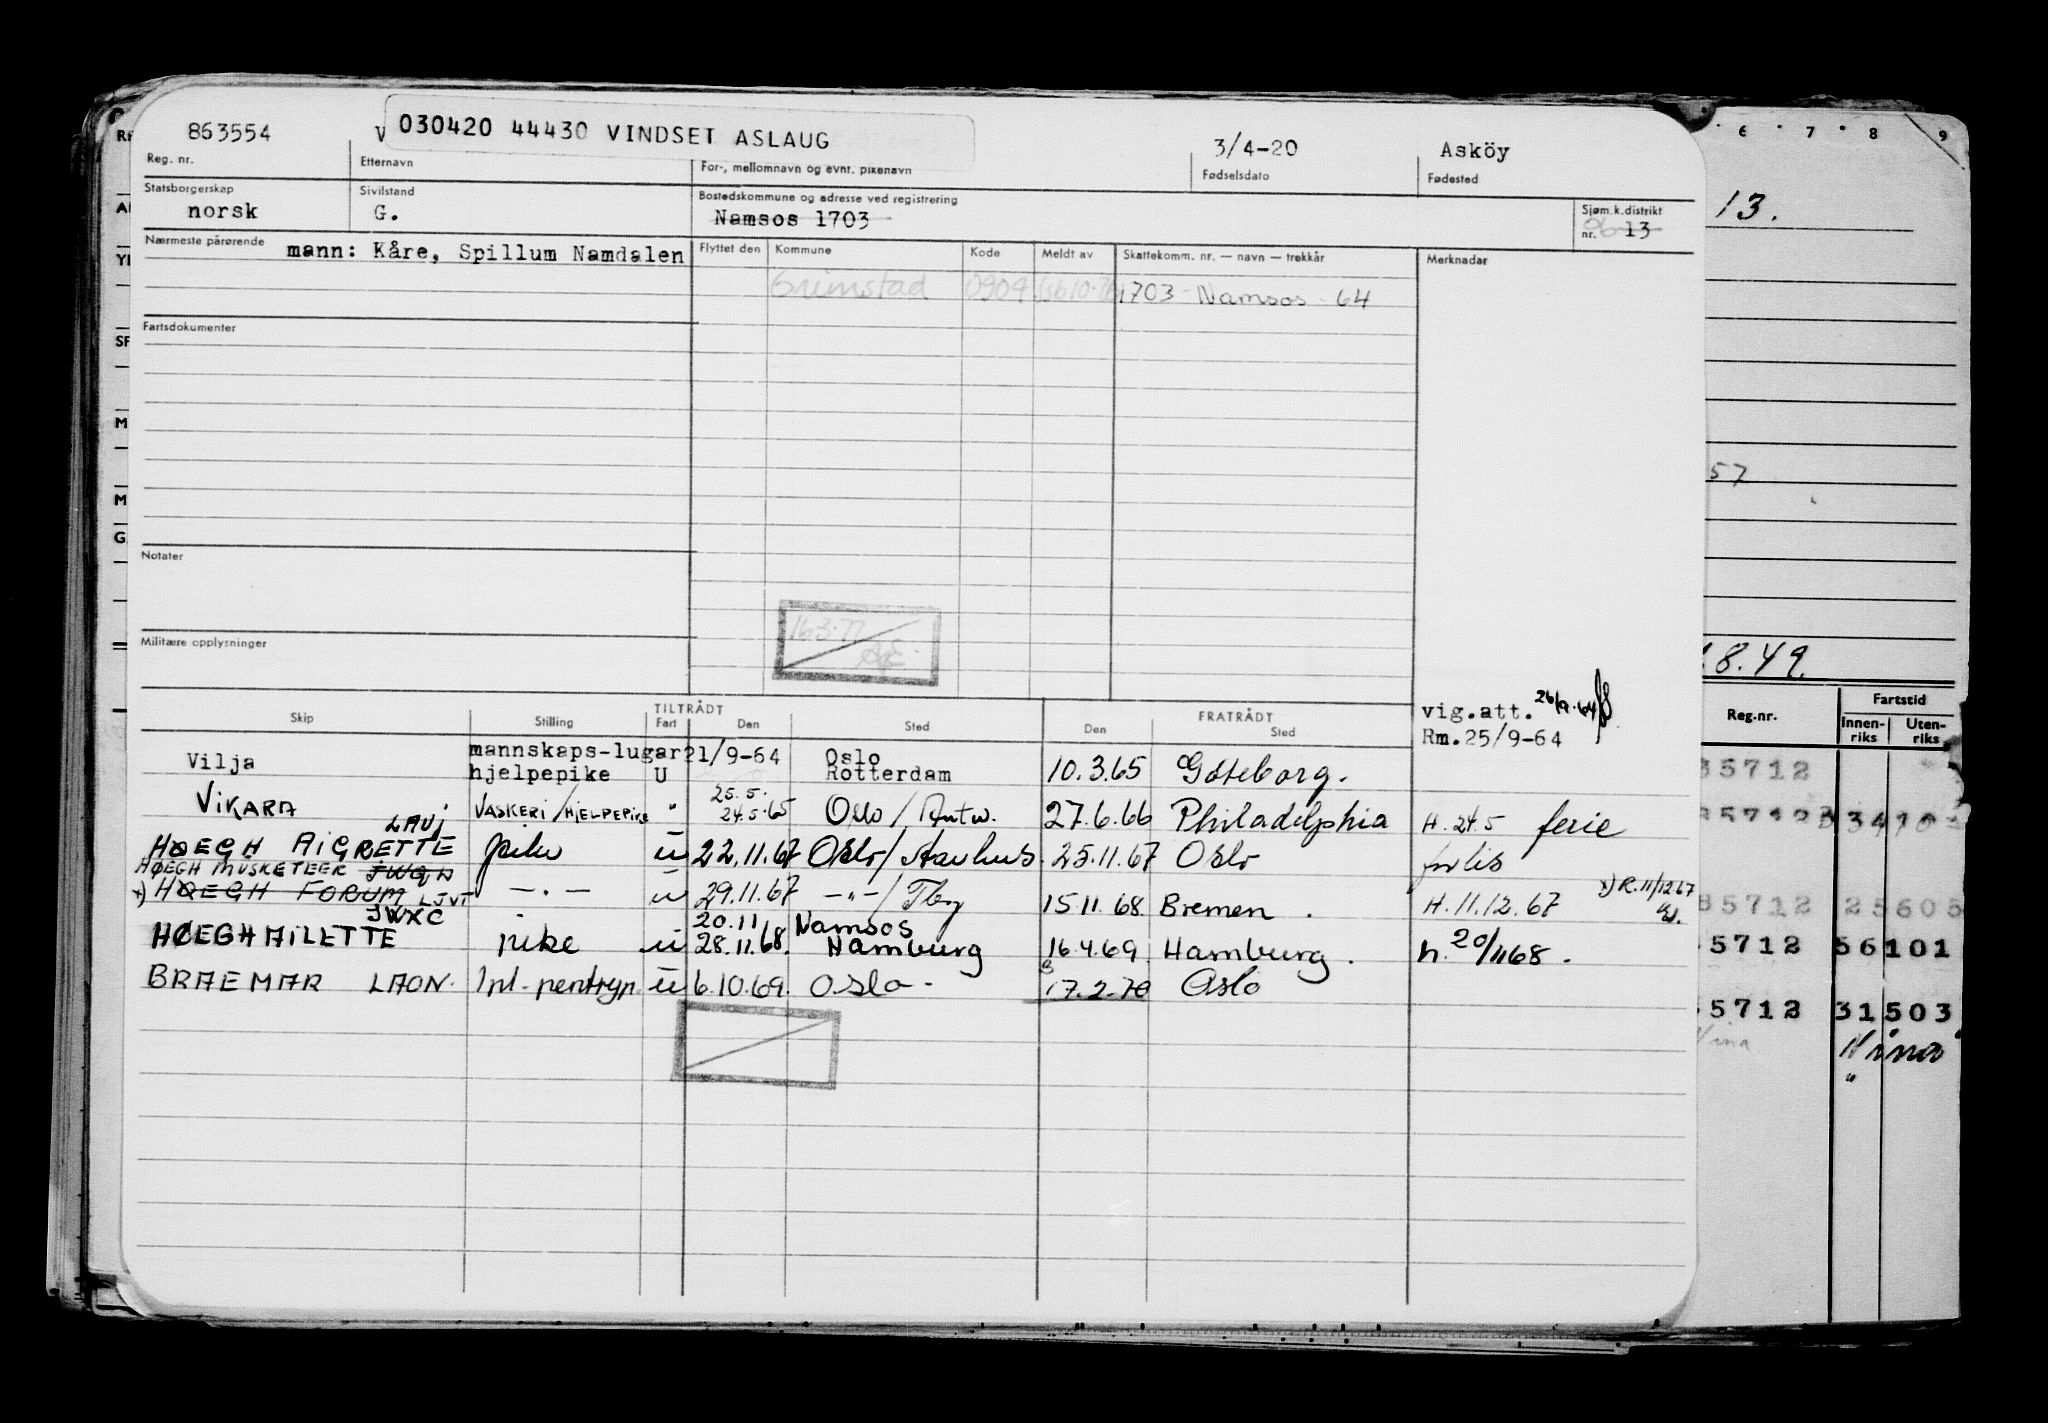 863554 030420 44430 VINDSET ASLAUG 3/4-20 Asköy
Reg. nr. Etternavn For-, mellomnavn og evnt. pikenavn Fødselsdato Fødested
Statsborgerskap Sivilstand Bostedskommune og adresse ved registrering Sjøm.k.distrikt
norsk G. Namsos 1703 nr. 06 13
Nærmeste pårørende mann: Kåre, Spillum Namdalen Flyttet den Kommune Kode Meldt av Skattekomm. nr. — navn — trekkår Merknader
Grimstad 0904 1703 - Namsos - 64
Fartsdokumenter
Notater
163.77
Militære opplysninger
TILTRÅDT FRATRÅDT vig.att. 26/9-64
Skip Stilling Fart Den Sted Den Sted Rm.25/9-64
Vilja mannskaps-lugar hjelpepike U 21/9-64 Oslo Rotterdam 10.3.65 Göteborg.
VIKARA VASKERI/HJELPEPIKE " 25.5. 24.5.65 Oslo / Antw. 27.6.66 Philadelphia H. 24.5 ferie
LAUJ
HØEGH AIGRETTE pike u 22.11.67 Oslo / Aarhus 25.11.67 Oslo forlis
HØEGH MUSKETEER JWQW
x) HØEGH FORUM LJVT — " — u 29.11.67 — " — / Tbg 15.11.68 Bremen. H. 11.12.67 x) R. 11/12 67
JWXC
HØEGH MILETTE pike u 20.11 28.11.68. Namsos Hamburg 16.4.69 Hamburg. h. 20/11 68.
BRAEMAR LAON. Ipl. pentryp. u 6.10.69. Oslo. 17.2.70 Oslo
6 7 8 9
13.
57
.8.49.
Reg.nr. Fartstid
Innen-riks Uten-riks
35712
35712 3 3410
85712 25605
5712 56101
5712 31503
Nina Nina
"